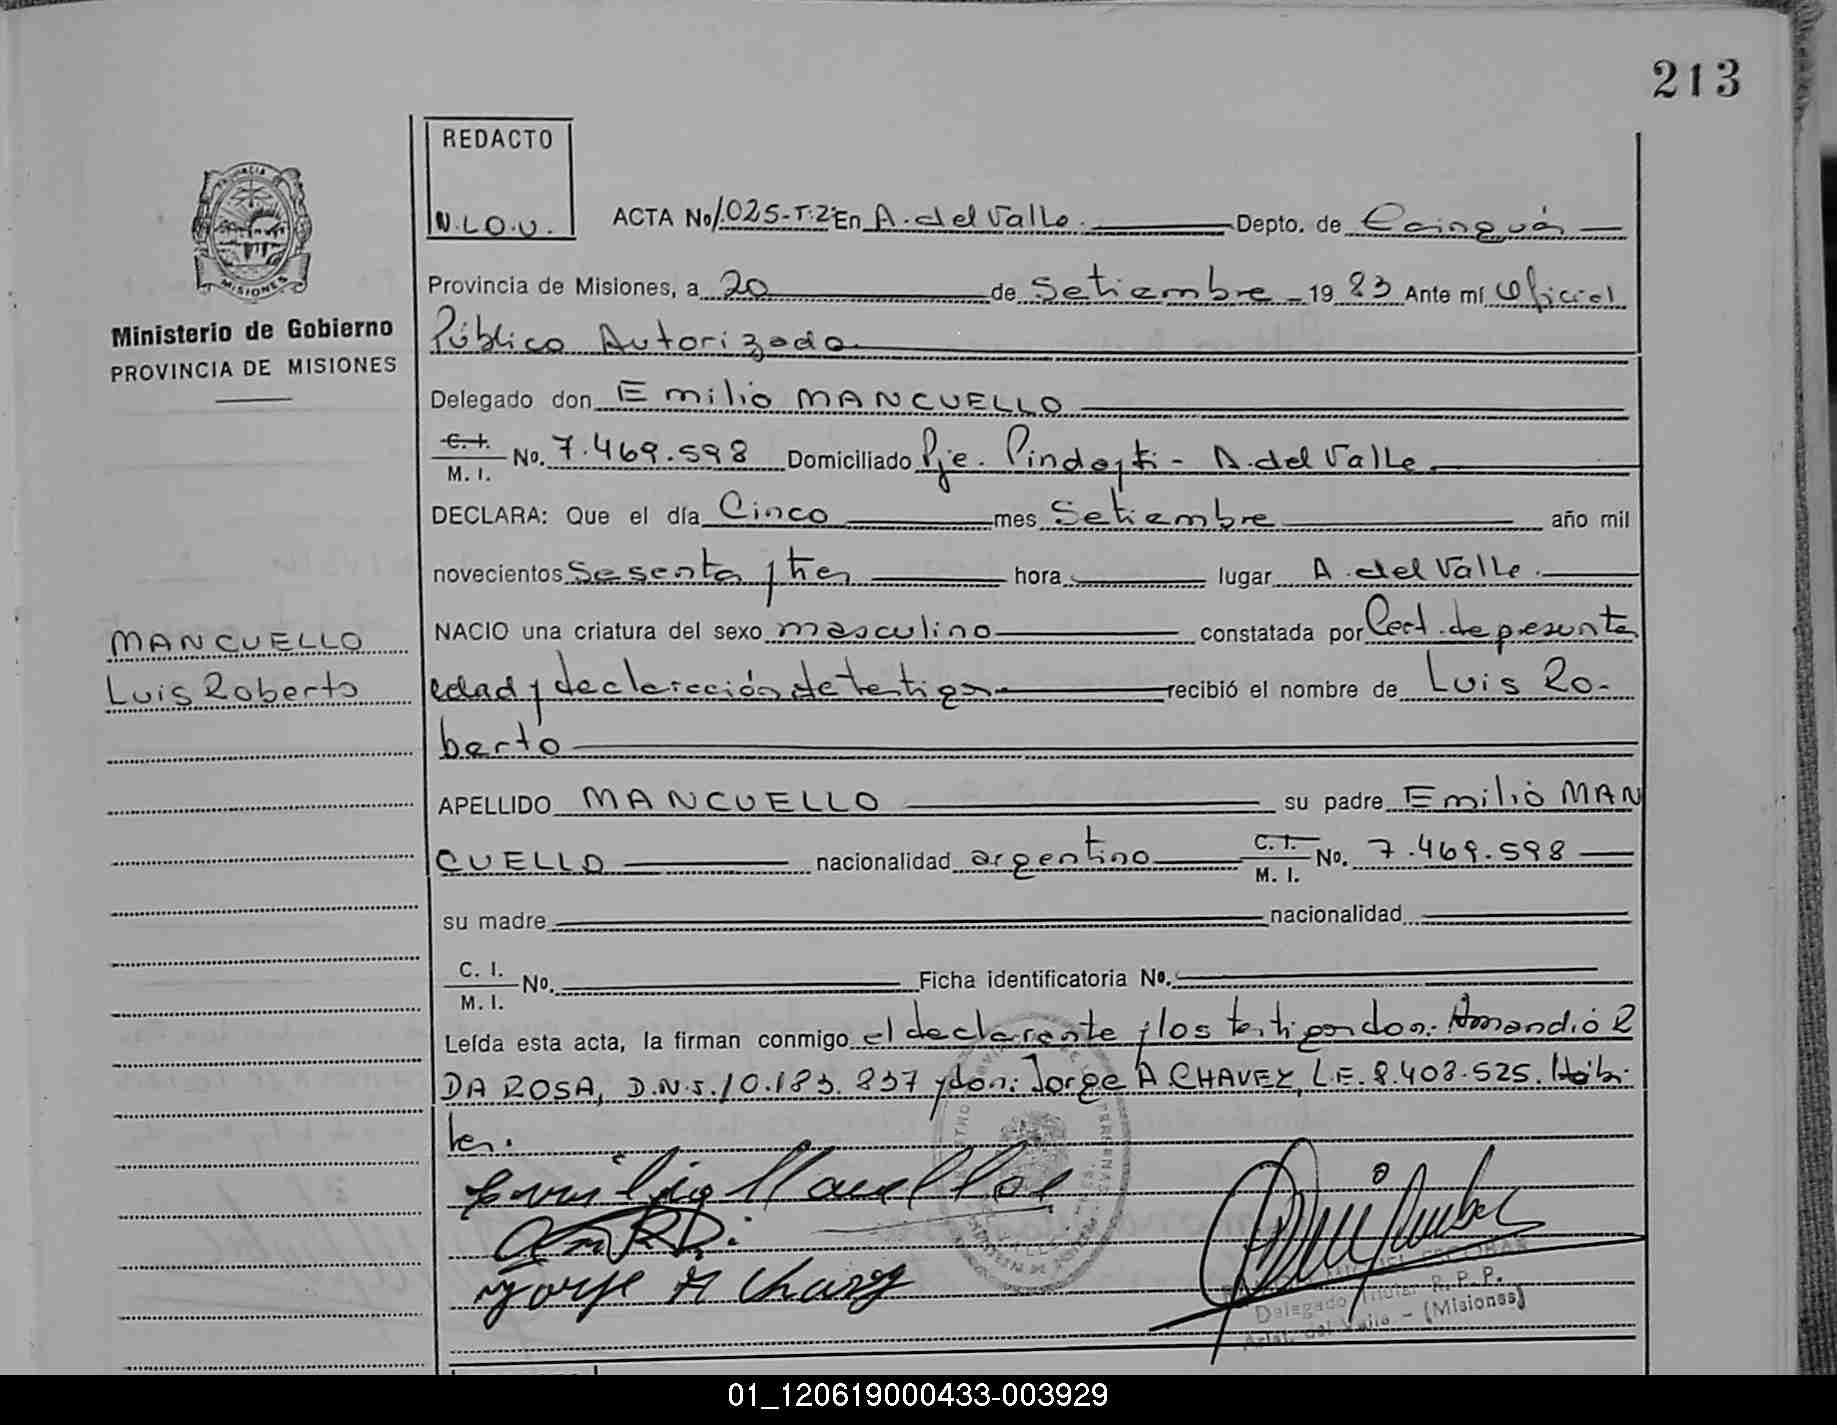 213
REDACTO
N.L.O.V.
PROVINCIA DE
MISIONES
Ministerio de Gobierno
PROVINCIA DE MISIONES
ACTA No 1.025-T:2º En A. del Valle. Depto. de Cainguás
Provincia de Misiones, a 20 de Setiembre 19 83 Ante mí Oficial
Público Autorizado
Delegado don Emilio MANCUELLO
C. I.
M. I. No. 7.469.598 Domiciliado Pje. Pindayti - A. del Valle.
DECLARA: Que el día Cinco mes Setiembre año mil
novecientos Sesenta y tres hora lugar A. del Valle.
NACIO una criatura del sexo masculino constatada por Cert. de presunta
edad y declaración de testigos. recibió el nombre de Luis Ro-
berto
MANCUELLO
Luis Roberto
APELLIDO MANCUELLO su padre Emilio MAN
CUELLO nacionalidad argentino C. I.
M. I. No. 7.469.598
su madre nacionalidad
C. I.
M. I. No. Ficha identificatoria No.
Leída esta acta, la firman conmigo el declarante y los testigos don: Amandio R
DA ROSA, D.N.I. 10.183.837 y don: Jorge A CHAVEZ, L.E. 8.408.525. Hábi-
les.
Emilio Mancuello
Jorge A Chavez
ESCOBAR
Delegado Titular R. P. P.
Arist. del Valle - (Misiones)
01_120619000433-003929